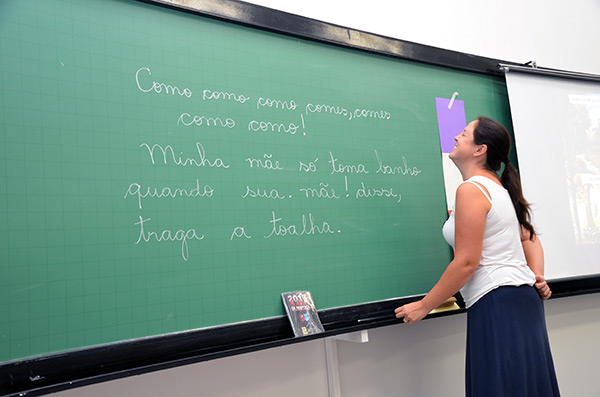 Como como como comes, comes
como como!
Minha mãe só toma banho
quando sua. mãe! disse,
traga a toalha.